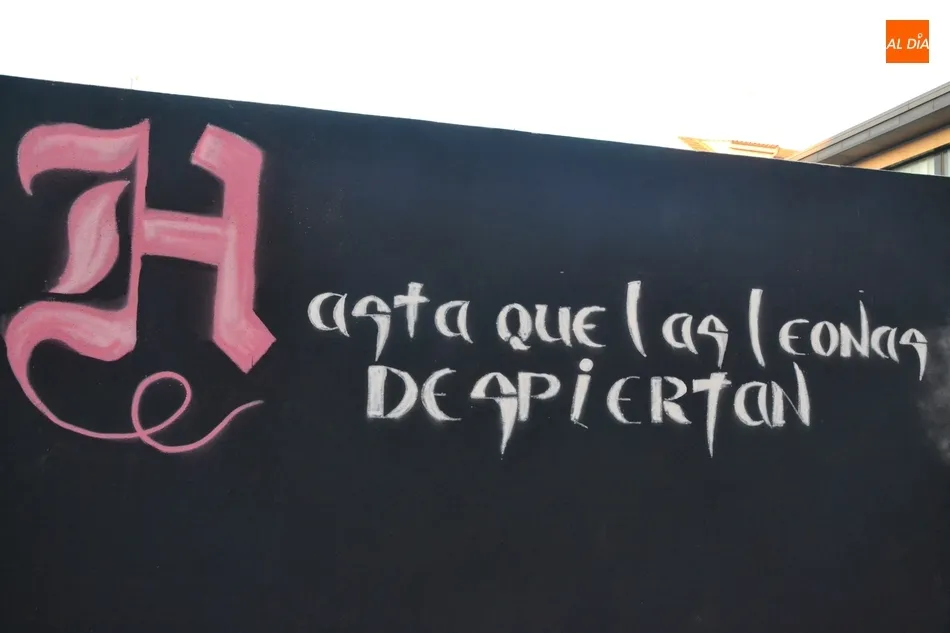 AL DÍA
Hasta que las leonas
DESPIERTAN